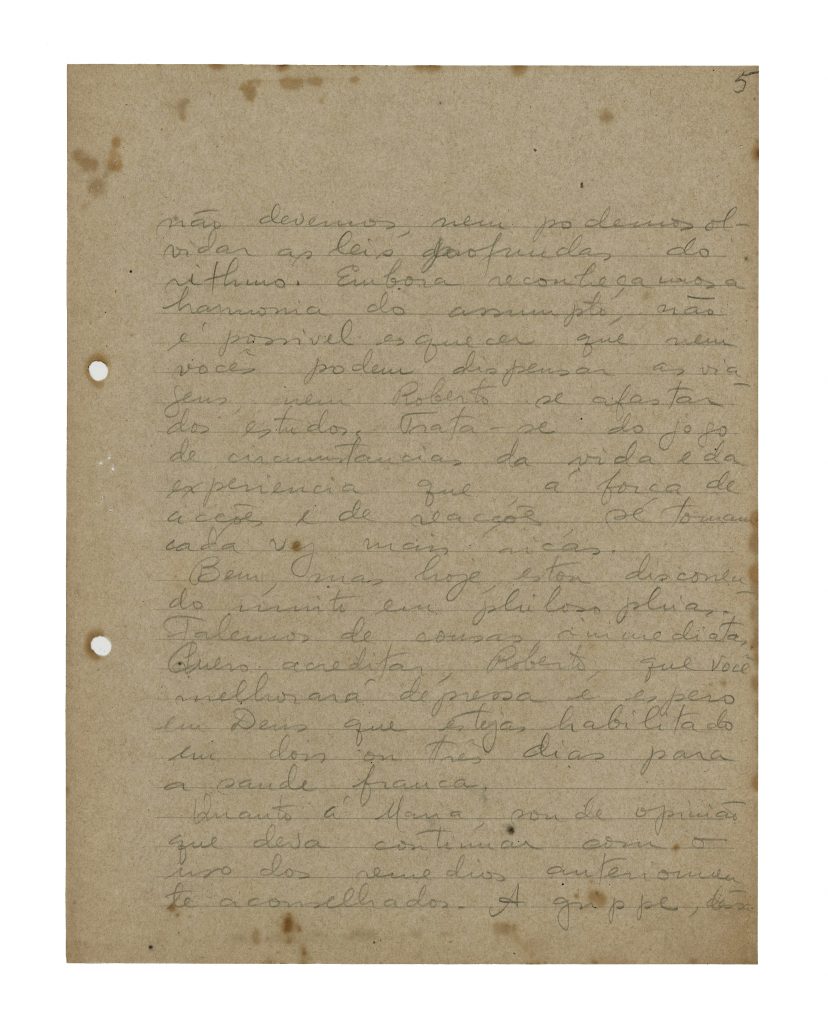 5
não devemos, nem podemos ol-
vidar as leis profundas do
rithmo. Embora reconheçamos a
harmonia do assumpto, não
é possivel esquecer que nem
vocês podem dispensar as via-
gens, nem Roberto se afastar
dos estudos. Trata-se do jogo
de circumstancias da vida e da
experiencia que, á força de
acções e de reacções, se tornam
cada vez mais ricas.
Bem, mas hoje, estou discorren-
do muito em philosophias.
Falemos de cousas immediatas.
Quero acreditar, Roberto, que você
melhorará depressa e espero
em Deus que estejas habilitado
em dois ou três dias para
a saude franca.
Quanto á Maria, sou de opinião
que deva continuar com o
uso dos remedios anteriormen
te aconselhados. A grippe,